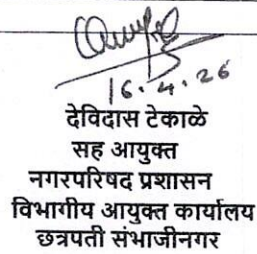 16.4.26
देविदास टेकाळे
सह आयुक्त
नगरपरिषद प्रशासन
विभागीय आयुक्त कार्यालय
छत्रपती संभाजीनगर